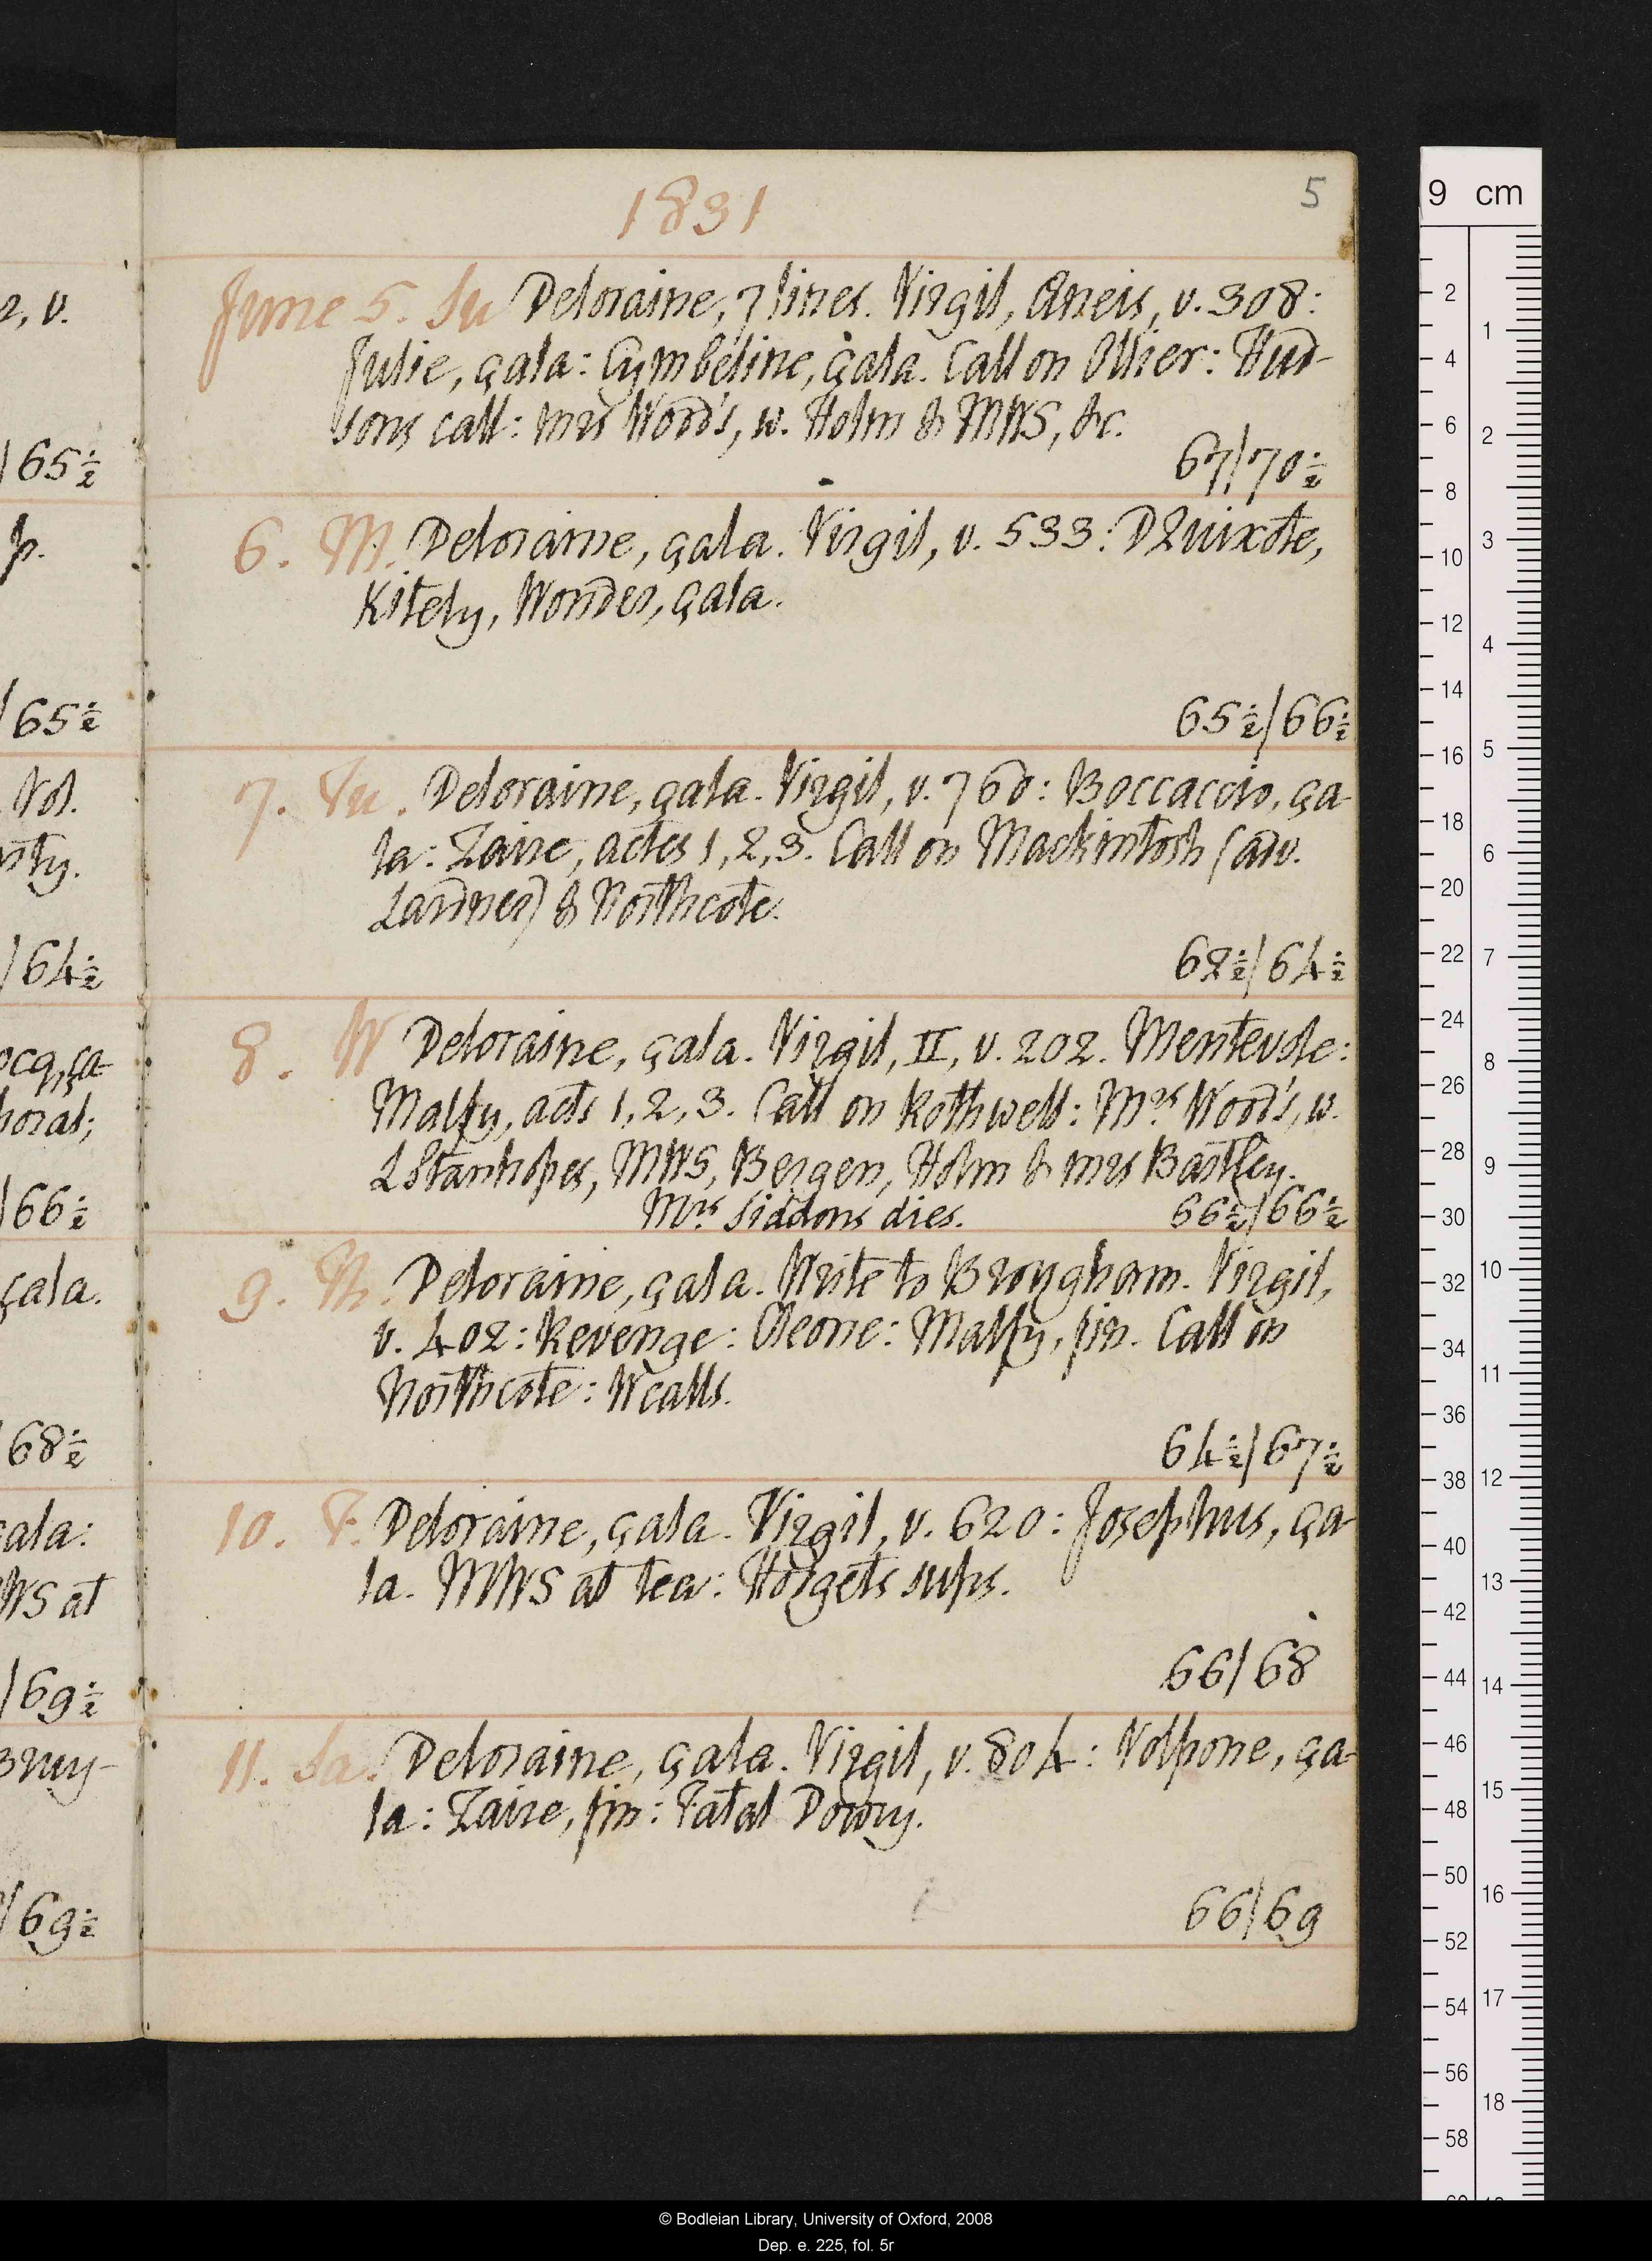 1831
5
June 5. Su Deloraine, 7 lines. Virgil, Æneis, v. 308:
Julie, çala: Cymbeline, çala. Call on Ollier: Hud-
sons call: mrs Wood's, w. Holm & MWS, &c.
67/70½
6. M. Deloraine, çala. Virgil, v. 533: DQuixote,
Kitely, Wonder, çala.
65½/66½
7. Tu. Deloraine, çala. Virgil, v. 760: Boccaccio, ça-
la: Zaire, actes 1, 2, 3. Call on Mackintosh (adv.
Lardner) & Northcote.
62½/64½
8. W Deloraine, çala. Virgil, II, v. 202. Mentevole:
Malfy, acts 1, 2, 3. Call on Rothwell: Mrs Wood's, w.
LStanhopes, MWS, Bergen, Holm & mrs Bartley.
Mrs Siddons dies. 66½/66½
9. Th. Deloraine, çala. Write to Brougham. Virgil,
v. 402: Revenge: Cleone: Malfy, fin. Call on
Northcote: W calls.
64½/67½
10. F. Deloraine, çala. Virgil, v. 620: Josephus, ça-
la. MWS at tea: Hodgets sups.
66/68
11. Sa. Deloraine, çala. Virgil, v. 804: Volpone, ça-
la: Zaire, fin: Fatal Dowry.
66/69
2, v.
/65½
p.
/65½
Vol.
nty.
/64½
ocq, ça-
horal;
/66½
çala.
68½
çala:
WS at
/69½
Bruy-
/69½
9 cm
2
4
6
8
10
12
14
16
18
20
22
24
26
28
30
32
34
36
38
40
42
44
46
48
50
52
54
56
58
1
2
3
4
5
6
7
8
9
10
11
12
13
14
15
16
17
18
© Bodleian Library, University of Oxford, 2008
Dep. e. 225, fol. 5r